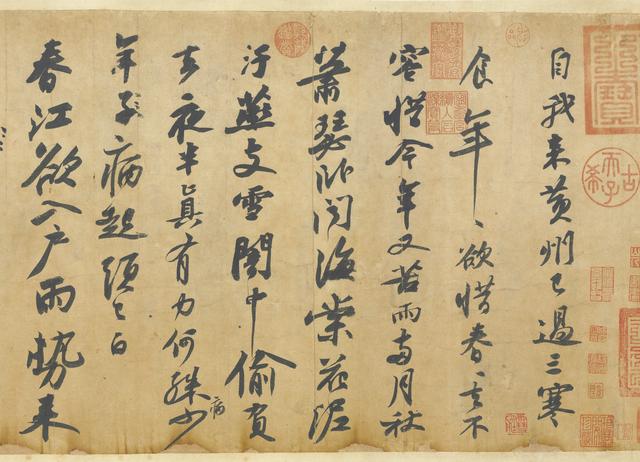 自我來黃州已過三寒
食年〻欲惜春〻去不
容惜今年又苦雨兩月秋
蕭瑟臥聞海棠花泥
汙燕支雪闇中偷負
去夜半真有力何殊少
病
年子病起須已白
春江欲入戶雨勢來
古希天子